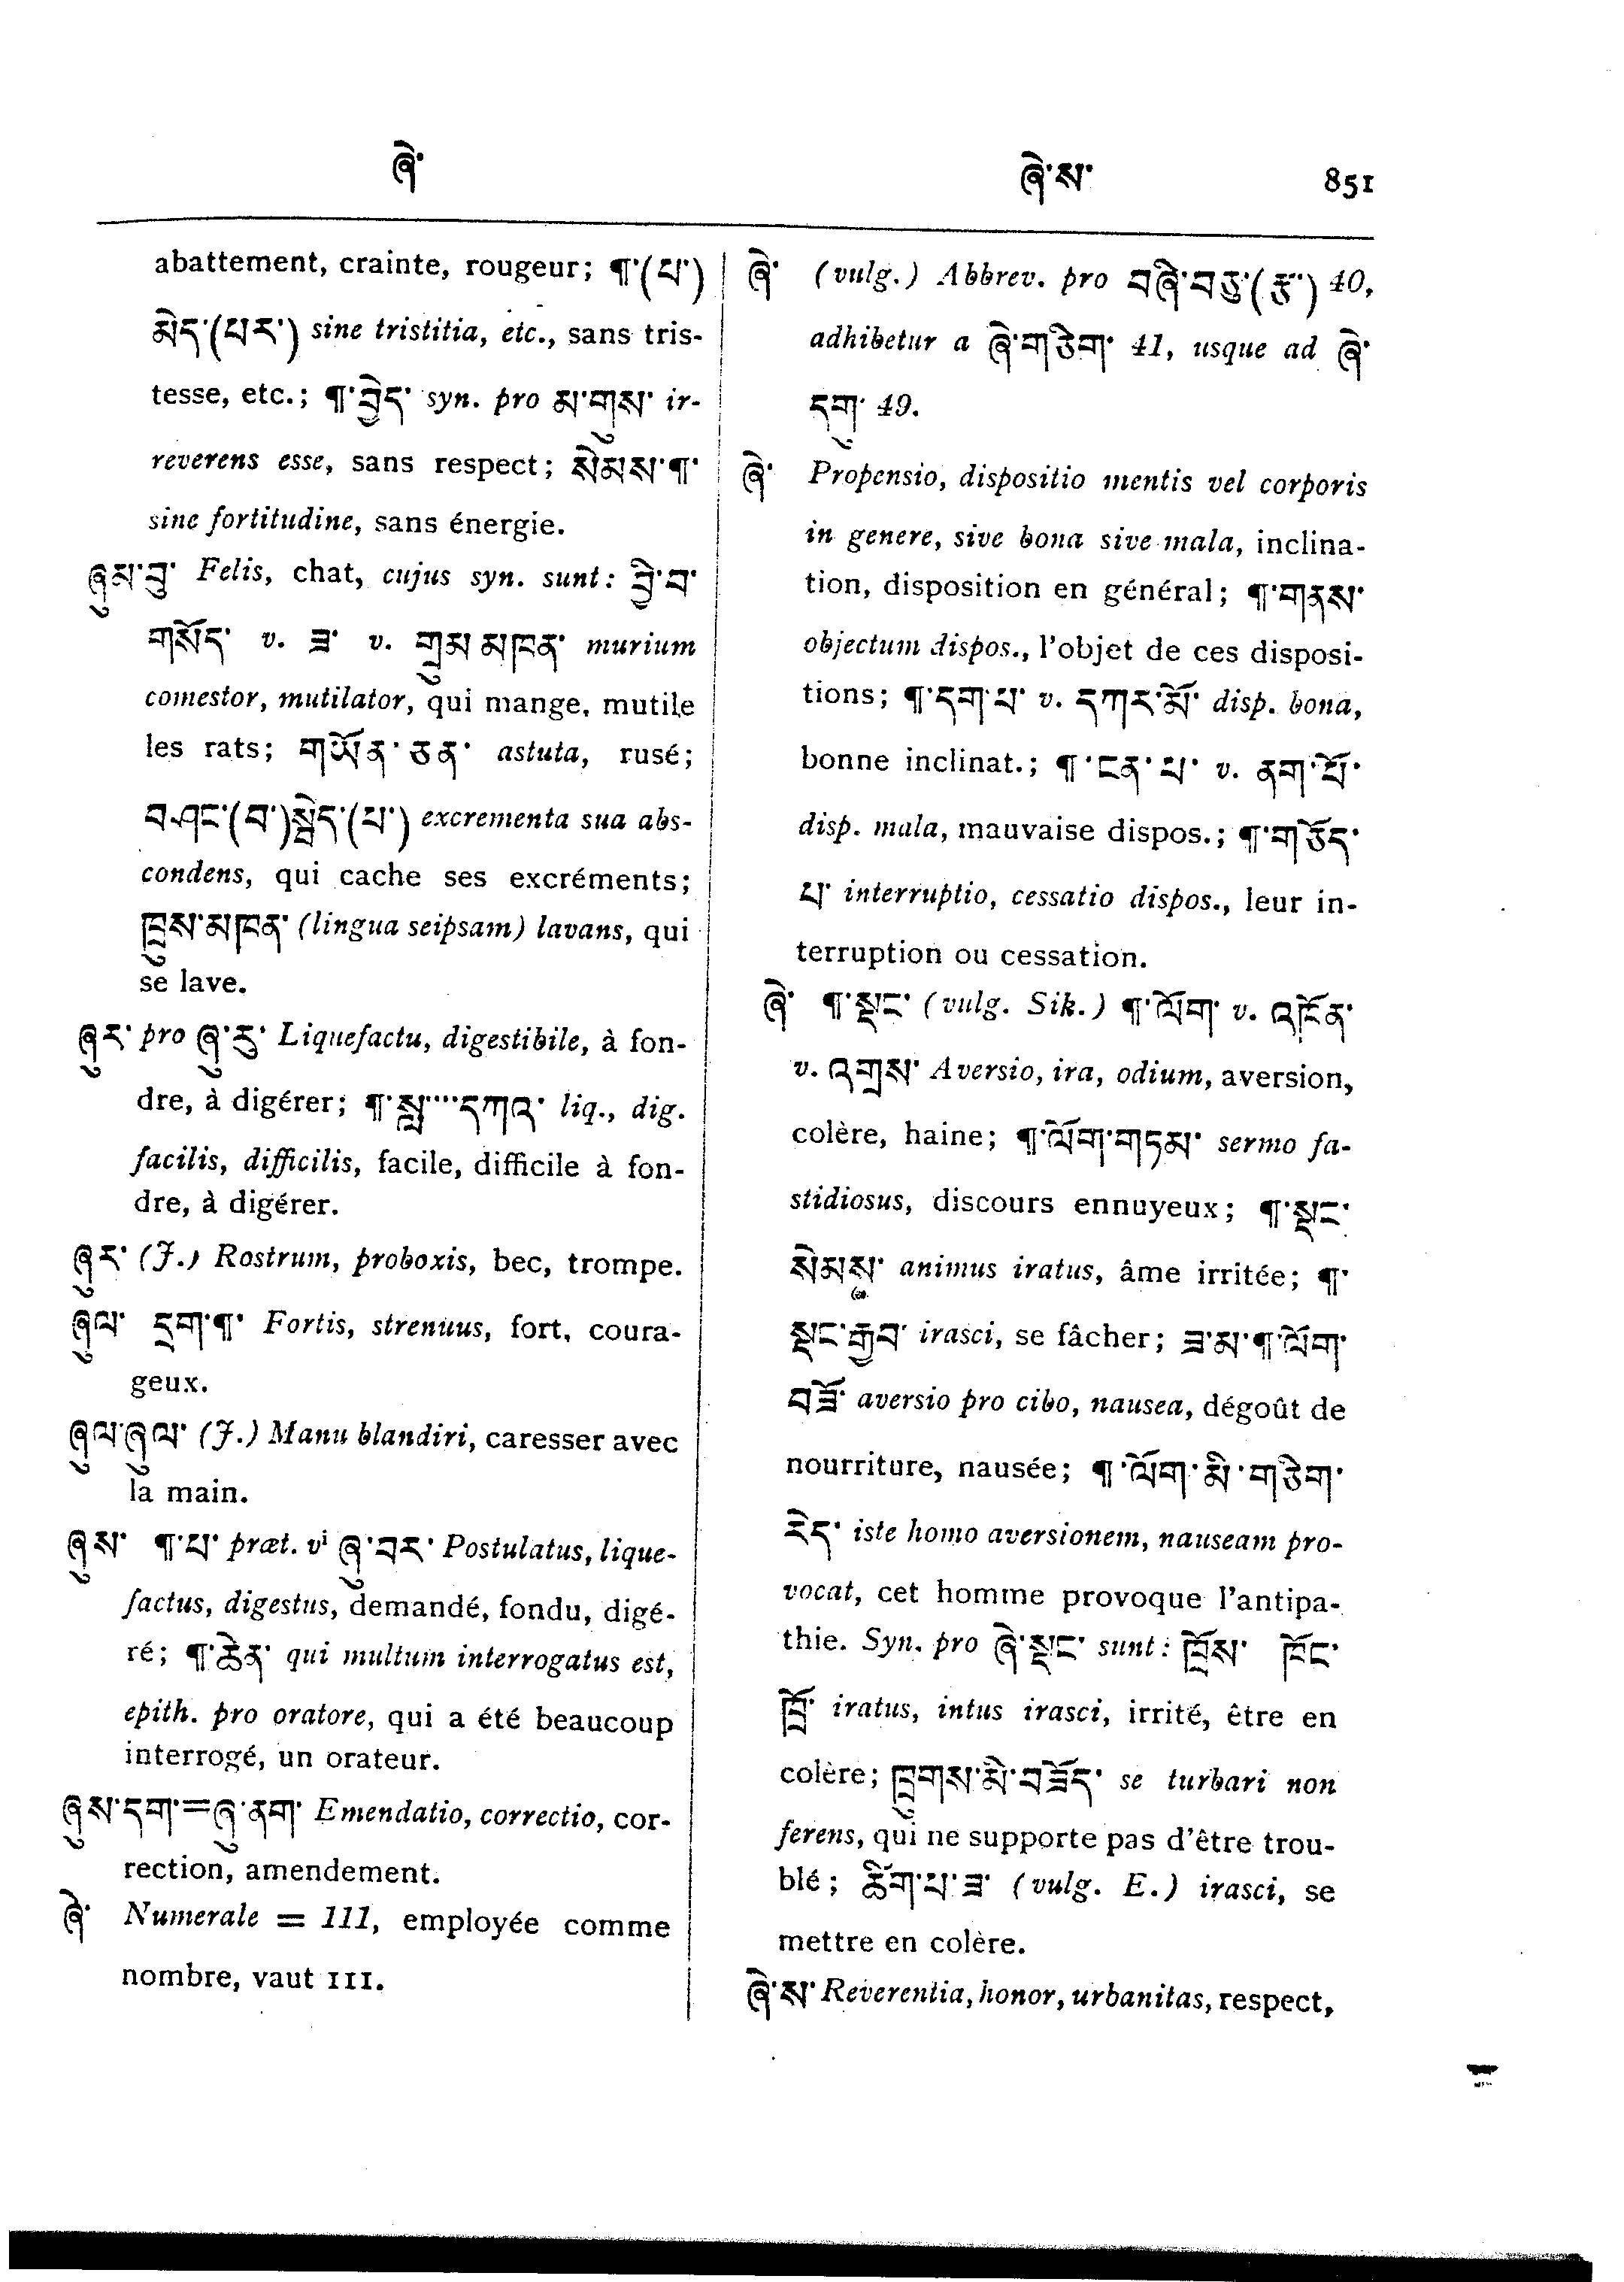 ཞེ་ ཞེ་ས་ 851
abattement, crainte, rougeur; ¶་(པ་)
མེད་(པར་) sine tristitia, etc., sans tris-
tesse, etc.; ¶་བྱེད་ syn. pro མ་གུས་ ir-
reverens esse, sans respect; སེམས་¶་
sine fortitudine, sans énergie.
ཞུམ་བུ་ Felis, chat, cujus syn. sunt: བྱི་བ་
གསོད་ v. ཟ་ v. གྲུམ་མཁན་ murium
comestor, mutilator, qui mange, mutile
les rats; གཡོན་ཅན་ astuta, rusé;
བཤང་(བ་)སྦེད་(པ་) excrementa sua abs-
condens, qui cache ses excréments;
ཁྲུས་མཁན་ (lingua seipsam) lavans, qui
se lave.
ཞུར་ pro ཞུ་རུ་ Liquefactu, digestibile, à fon-
dre, à digérer; ¶་སླ་...དཀའ་ liq., dig.
facilis, difficilis, facile, difficile à fon-
dre, à digérer.
ཞུར་ (J.) Rostrum, proboxis, bec, trompe.
ཞུལ་ དྲག་¶་ Fortis, strenuus, fort, coura-
geux.
ཞུལ་ཞུལ་ (J.) Manu blandiri, caresser avec
la main.
ཞུས་ ¶་པ་ præt. vi ཞུ་བར་ Postulatus, lique-
factus, digestus, demandé, fondu, digé-
ré; ¶་ཆེན་ qui multum interrogatus est,
epith. pro oratore, qui a été beaucoup
interrogé, un orateur.
ཞུས་དག་=ཞུ་ནག་ Emendatio, correctio, cor-
rection, amendement.
ཞེ་ Numerale = 111, employée comme
nombre, vaut 111.
ཞེ་ (vulg.) Abbrev. pro བཞེ་བཅུ་(རྩ་) 40,
adhibetur a ཞེ་གཅིག་ 41, usque ad ཞེ་
དགུ་ 49.
ཞེ་ Propensio, dispositio mentis vel corporis
in genere, sive bona sive mala, inclina-
tion, disposition en général; ¶་གནས་
objectum dispos., l'objet de ces disposi-
tions; ¶་དག་པ་ v. དཀར་མོ་ disp. bona,
bonne inclinat.; ¶་ངན་པ་ v. ནག་པོ་
disp. mala, mauvaise dispos.; ¶་གཅོད་
པ་ interruptio, cessatio dispos., leur in-
terruption ou cessation.
ཞེ་ ¶་སྡང་ (vulg. Sik.) ¶་ལོག་ v. འཁོན་
v. འགྲས་ Aversio, ira, odium, aversion,
colère, haine; ¶་ལོག་གཏམ་ sermo fa-
stidiosus, discours ennuyeux; ¶་སྡང་
སེམས་ animus iratus, âme irritée; ¶་
སྡང་རྒྱབ་ irasci, se fâcher; ཟ་མ་¶་ལོག་
བཟོ་ aversio pro cibo, nausea, dégoût de
nourriture, nausée; ¶་ལོག་མི་གཅིག་
རེད་ iste homo aversionem, nauseam pro-
vocat, cet homme provoque l'antipa-
thie. Syn. pro ཞེ་སྡང་ sunt: ཁྲོས་ ཁོང་
ཁྲོ་ iratus, intus irasci, irrité, être en
colère; ཁྲུགས་མི་བཟོད་ se turbari non
ferens, qui ne supporte pas d'être trou-
blé; ཚིག་པ་ཟ་ (vulg. E.) irasci, se
mettre en colère.
ཞེ་ས་ Reverentia, honor, urbanitas, respect,